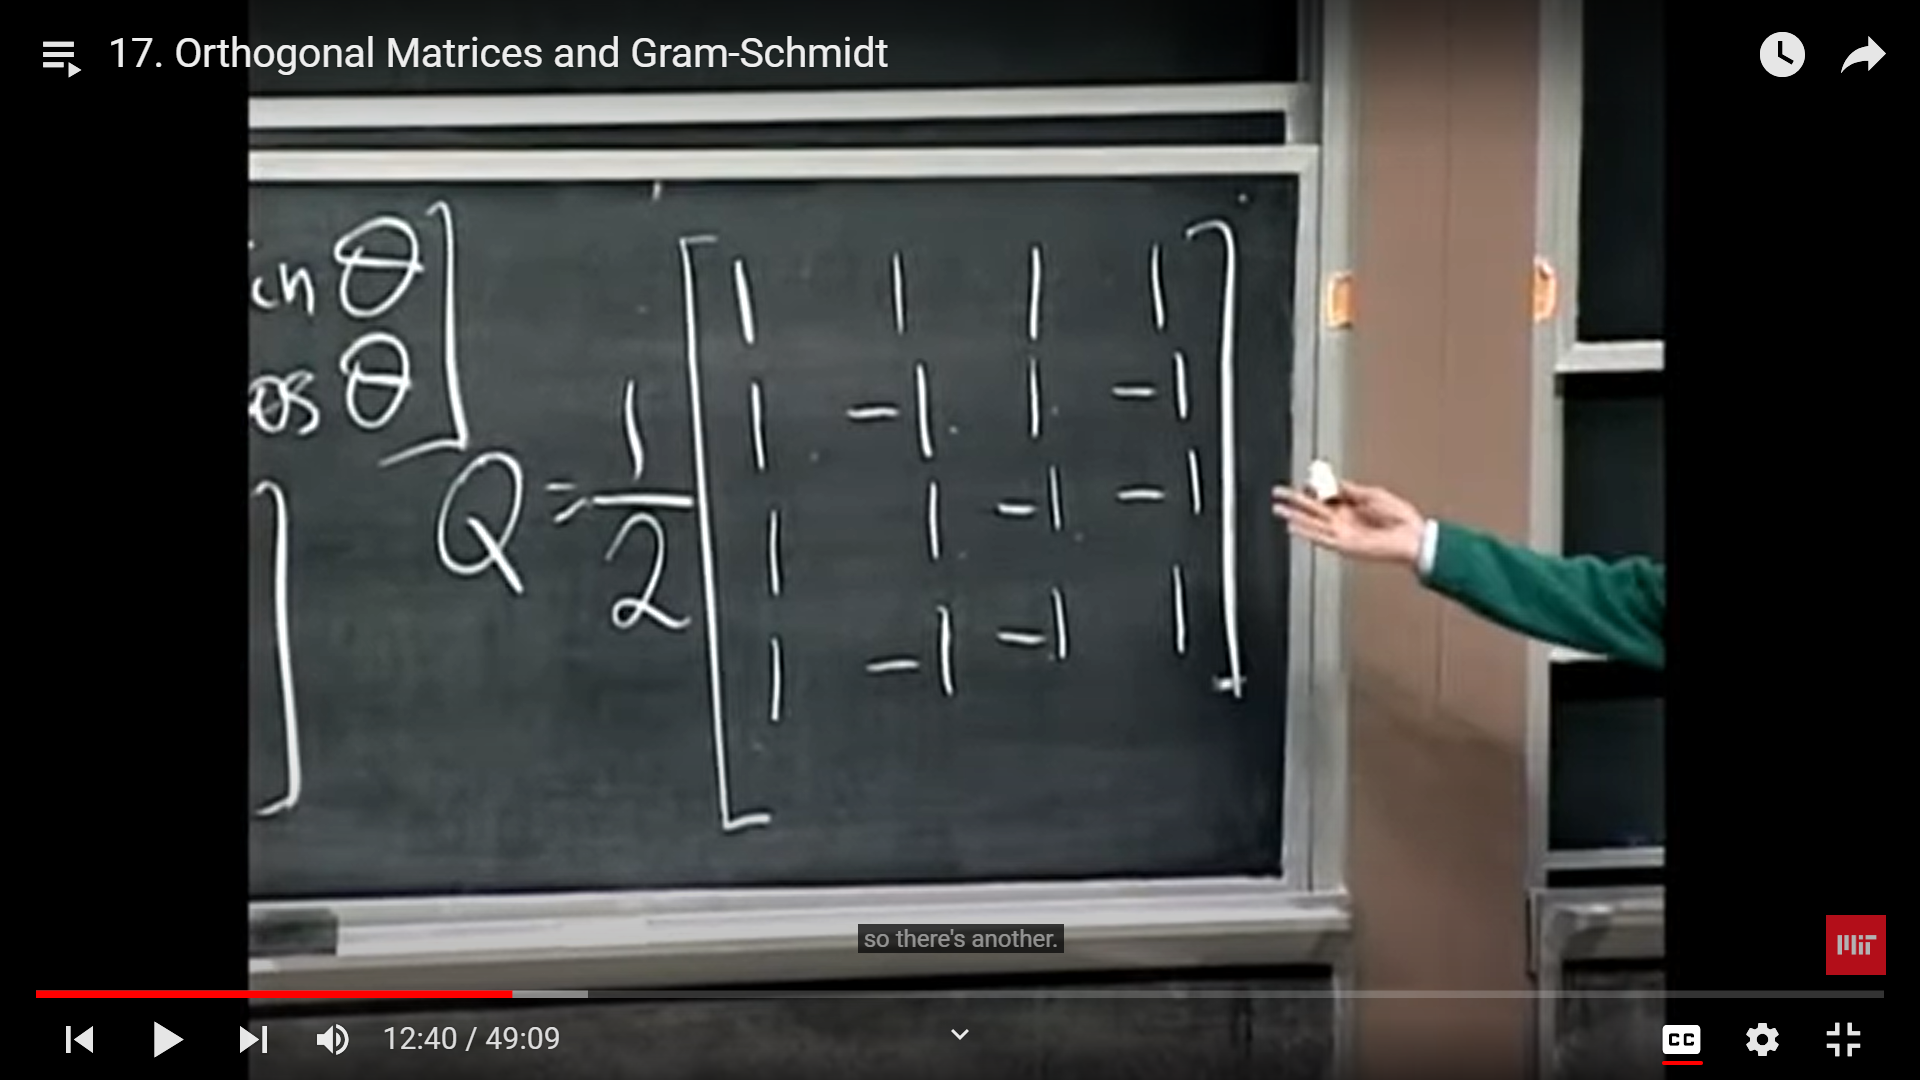 17. Orthogonal Matrices and Gram-Schmidt
in θ
os θ
Q = 1/2
1 1 1 1
1 -1 1 -1
1 1 -1 -1
1 -1 -1 1
so there's another.
MIT
12:40 / 49:09
CC